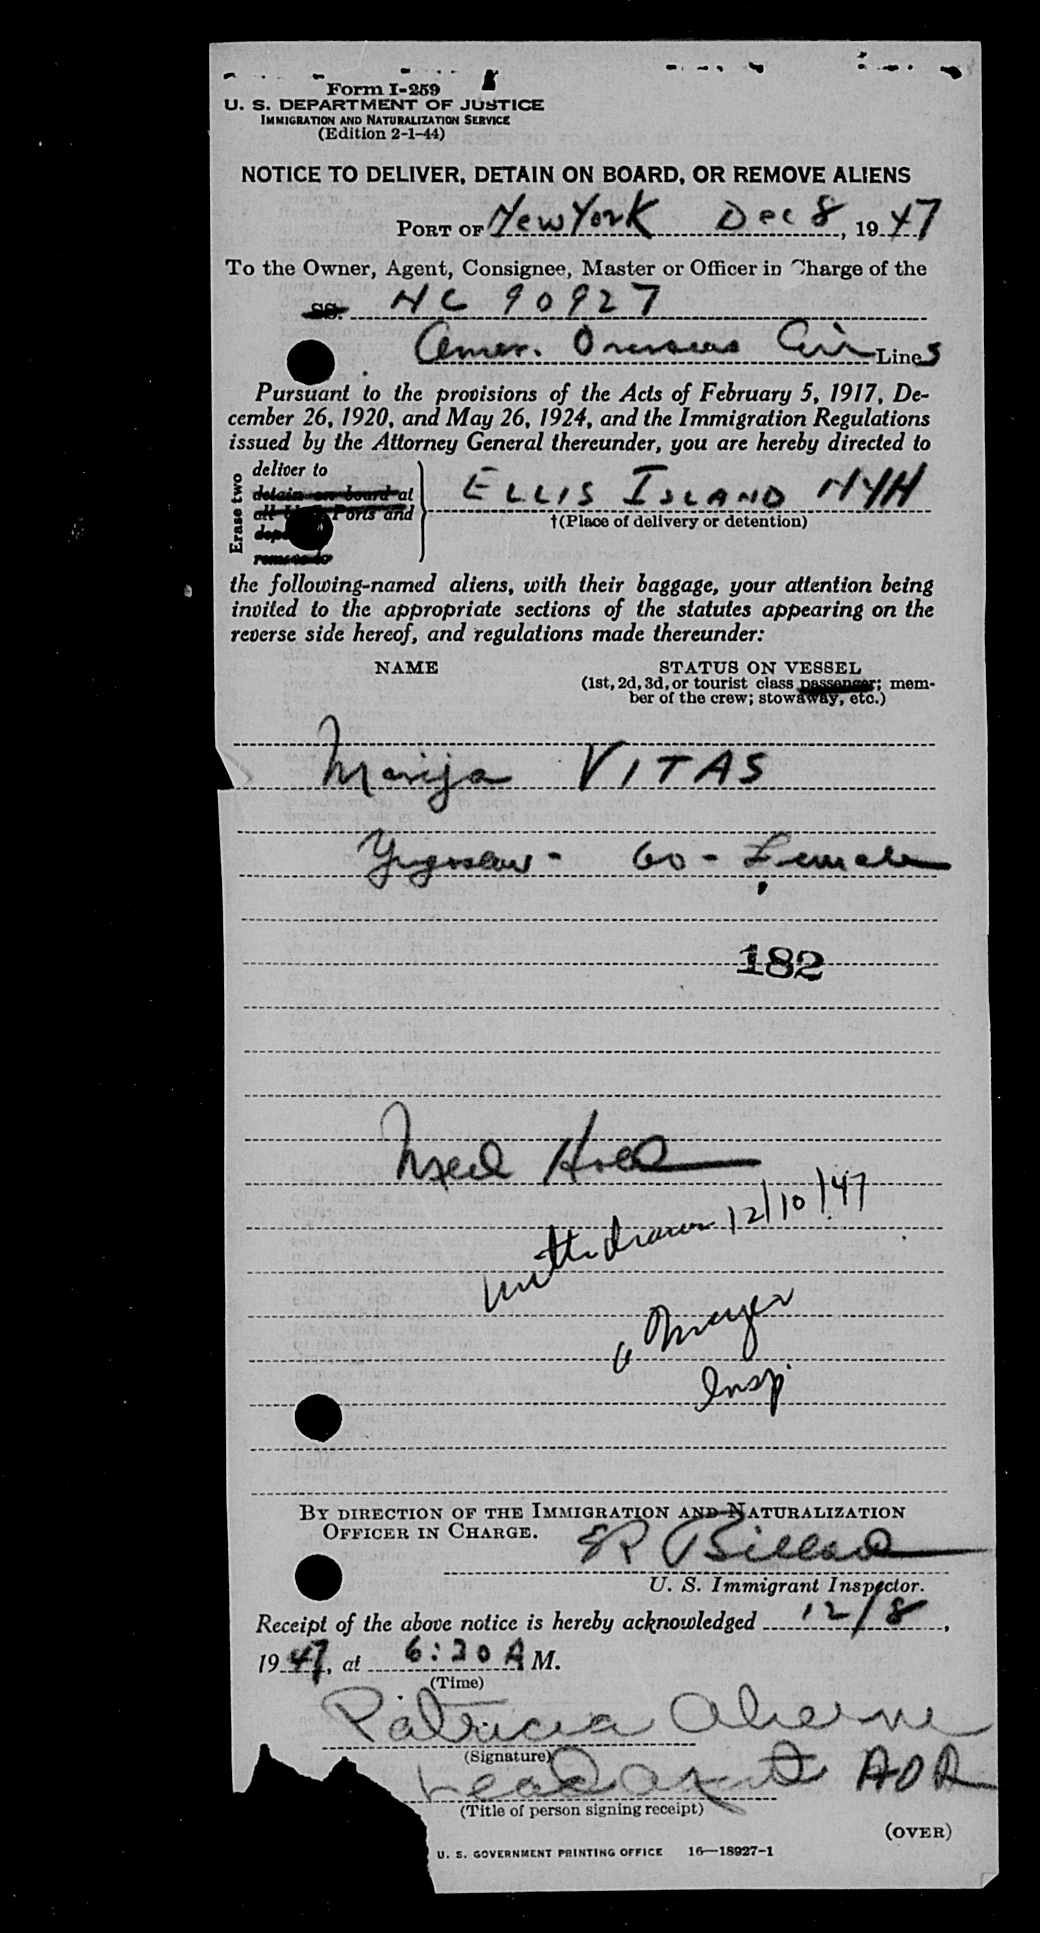 Form I-259
U. S. DEPARTMENT OF JUSTICE
IMMIGRATION AND NATURALIZATION SERVICE
(Edition 2-1-44)
NOTICE TO DELIVER, DETAIN ON BOARD, OR REMOVE ALIENS
PORT OF New York Dec 8, 1947
To the Owner, Agent, Consignee, Master or Officer in Charge of the
SS. NC 90927
Amer. Overseas Air Lines
Pursuant to the provisions of the Acts of February 5, 1917, De-
cember 26, 1920, and May 26, 1924, and the Immigration Regulations
issued by the Attorney General thereunder, you are hereby directed to
Erase two
deliver to
detain on board at
Ports and
remove to
ELLIS ISLAND NYH
†(Place of delivery or detention)
the following-named aliens, with their baggage, your attention being
invited to the appropriate sections of the statutes appearing on the
reverse side hereof, and regulations made thereunder:
NAME STATUS ON VESSEL
(1st, 2d, 3d, or tourist class passenger; mem-
ber of the crew; stowaway, etc.)
Marija VITAS
Yugoslav - 60 - Female
182
Med Hold
withdrawn 12/10/47
Insp
BY DIRECTION OF THE IMMIGRATION AND NATURALIZATION
OFFICER IN CHARGE.
U. S. Immigrant Inspector.
Receipt of the above notice is hereby acknowledged 12/8,
1947, at 6:30 A M.
(Time)
Patricia Aherne
(Signature)
Lead agent AOA
(Title of person signing receipt)
(OVER)
U. S. GOVERNMENT PRINTING OFFICE 16—18927-1